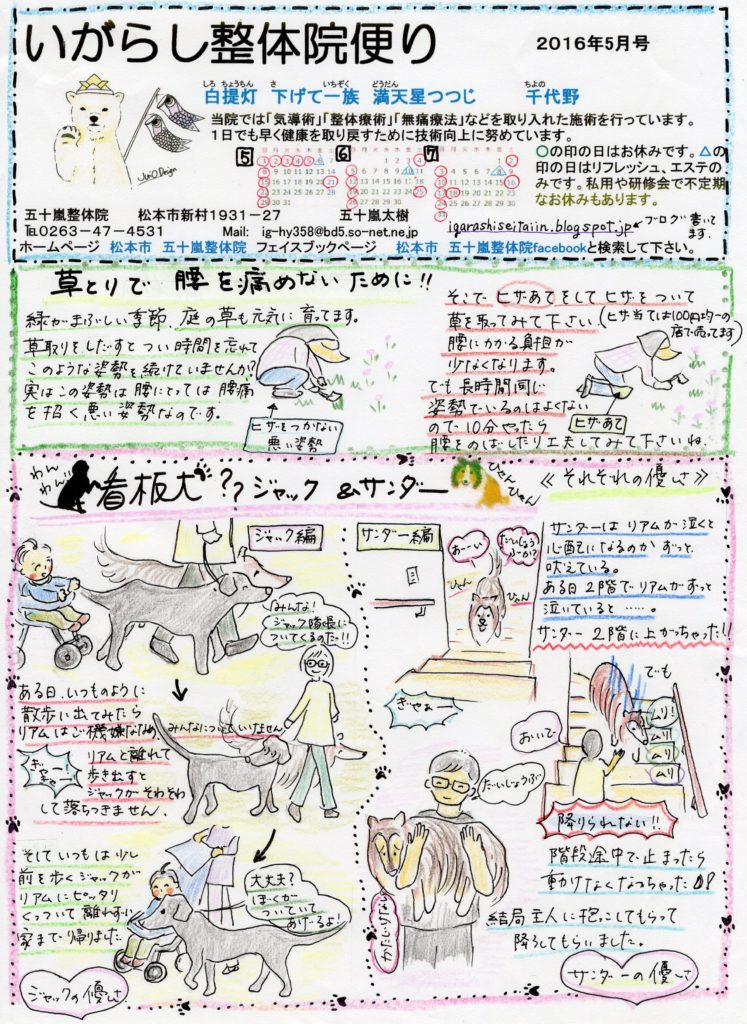 いがらし整体院便り
2016年5月号
しろ ちょうちん さ いちぞく どうだん ちよの
白提灯 下げて一族 満天星つつじ 千代野
当院では「気導術」「整体療術」「無痛療法」などを取り入れた施術を行っています。
1日でも早く健康を取り戻すために技術向上に努めています。
5
6
7
〇の印の日はお休みです。△の
印の日はリフレッシュ、エステの
みです。私用や研修会で不定期
なお休みもあります。
五十嵐整体院 松本市新村1931-27 五十嵐太樹
℡0263-47-4531 Mail: ig-hy358@bd5.so-net.ne.jp
igarashiseitaiin.blogspot.jp
ブログ書いて
ます。
ホームページ 松本市 五十嵐整体院 フェイスブックページ 松本市 五十嵐整体院facebookと検索して下さい。
草とりで 腰を痛めないために!!
緑がまぶしい季節、庭の草も元気に育ってます。
草取りをしだすとつい時間を忘れて
このような姿勢を続けていませんか?
実はこの姿勢は腰にとっては腰痛
を招く悪い姿勢なのです。
ヒザをつかない
悪い姿勢
そこでヒザあてをしてヒザをついて
草を取ってみて下さい
(ヒザ当ては100円均一の
店で売ってます)
腰にかかる負担が
少なくなります。
でも長時間同じ
姿勢でいるのはよくない
ので10分やったら
腰をのばしたり工夫してみて下さいね。
ヒザあて
わんわん
看板犬??ジャック&サンダー
ひゃんひゃん
≪それぞれの優しさ≫
ジャック編
みんな!
ジャック隊長に
ついてくるのだ!!
ある日、いつものように
散歩に出てみたら
リアムはご機嫌ななめ
みんなについていけません
ぎゃー
リアムと離れて
歩き出すと
ジャックがそわそわ
して落ちつきません
そしていつもは少し
前を歩くジャックが
リアムにピッタリ
くっついて離れずに
家まで帰りました
大丈夫?
ぼくが
ついていて
あげーるよ!
ジャックの優しさ
サンダー編
あーーい
だいじょうぶーか?
ひゃん
ひゃん
ぎゃあー
サンダーはリアムが泣くと
心配になるのかずっと
吠えている。
ある日2階でリアムがずっと
泣いていると……。
サンダー2階に上がっちゃった!!
でも
おいで
ムリ!
ムリ
ムリ
降りられない!!
だいじょうぶ
階段途中で止まったら
動けなくなっちゃった
結局主人に抱っこしてもらって
降ろしてもらいました。
サンダーの優しさ